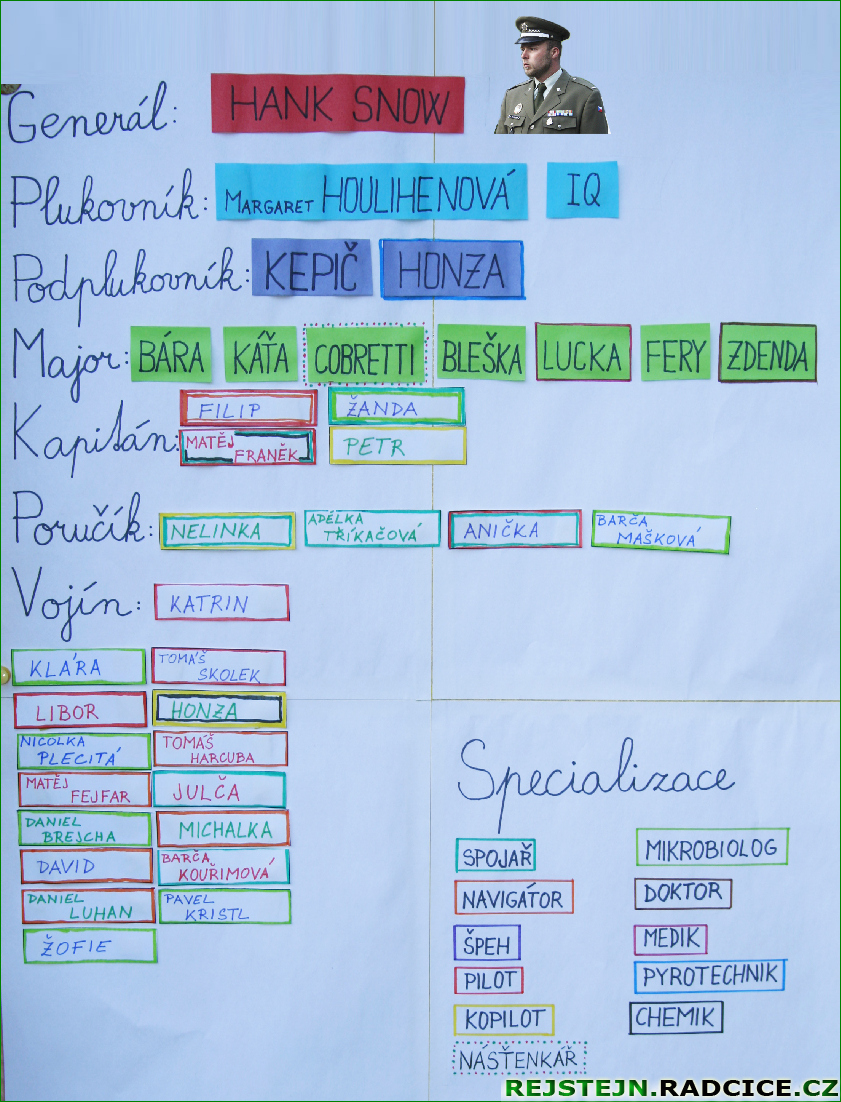 Generál: HANK SNOW
Plukovník: MARGARET HOULIHENOVÁ IQ
Podplukovník: KEPIČ HONZA
Major: BÁRA KÁŤA COBRETTI BLEŠKA LUCKA FERY ZDENDA
Kapitán: FILIP ŽANDA
MATĚJ FRANĚK PETR
Poručík: NELINKA ADÉLKA TŘÍKAČOVÁ ANIČKA BARČA MAŠKOVÁ
Vojín: KATRIN
KLÁRA TOMÁŠ SKOLEK
LIBOR HONZA
NICOLKA PLECITÁ TOMÁŠ HARCUBA
MATĚJ FEJFAR JULČA
DANIEL BREJCHA MICHALKA
DAVID BARČA KOUŘIMOVÁ
DANIEL LUHAN PAVEL KRISTL
ŽOFIE
Specializace
SPOJAŘ MIKROBIOLOG
NAVIGÁTOR DOKTOR
ŠPEH MEDIK
PILOT PYROTECHNIK
KOPILOT CHEMIK
NÁSTĚNKÁŘ
REJSTEJN.RADCICE.CZ